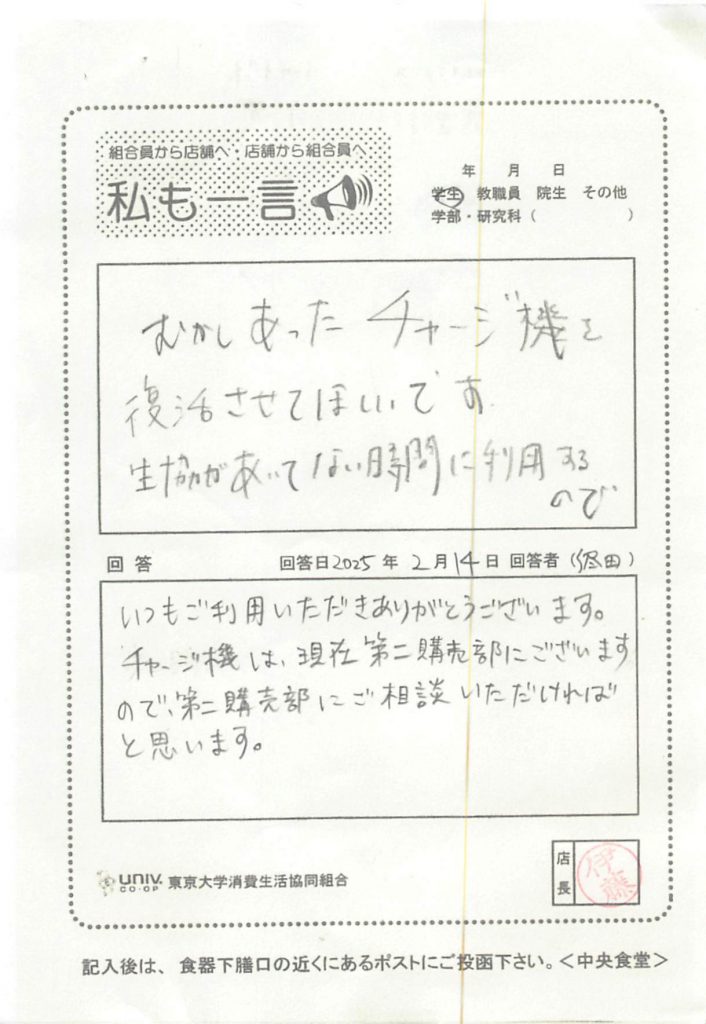 組合員から店舗へ・店舗から組合員へ
私も一言
年 月 日
学生 教職員 院生 その他
学部・研究科（ ）
むかしあったチャージ機を
復活させてほしいです
生協があいてない時間に利用する
ので
回答 回答日2025年 2月14日 回答者（ 田）
いつもご利用いただきありがとうございます。
チャージ機は、現在第二購売部にございます
ので、第二購売部にご相談いただければ
と思います。
店長
伊藤
UNIV. CO-OP 東京大学消費生活協同組合
記入後は、食器下膳口の近くにあるポストにご投函下さい。＜中央食堂＞